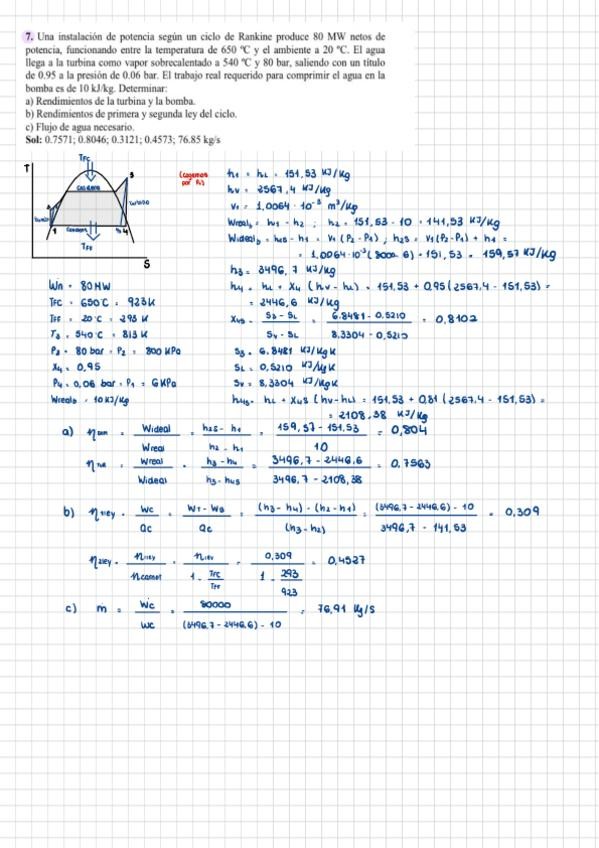 7. Una instalación de potencia según un ciclo de Rankine produce 80 MW netos de
potencia, funcionando entre la temperatura de 650 ºC y el ambiente a 20 ºC. El agua
llega a la turbina como vapor sobrecalentado a 540 ºC y 80 bar, saliendo con un título
de 0.95 a la presión de 0.06 bar. El trabajo real requerido para comprimir el agua en la
bomba es de 10 kJ/kg. Determinar:
a) Rendimientos de la turbina y la bomba.
b) Rendimientos de primera y segunda ley del ciclo.
c) Flujo de agua necesario.
Sol: 0.7571; 0.8046; 0.3121; 0.4573; 76.85 kg/s
T
TFC
3
Caldera
1
4
TFF
S
h1 = hL = 151,53 KJ/Kg
hv = 2567,4 KJ/Kg
V1 = 1,0064 · 10⁻³ m³/Kg
Wrealb = h1 - h2 ; h2 = 151,53 - 10 = 141,53 KJ/Kg
Widealb = h2s - h1 = V1 (P2 - P1) ; h2s = V1 (P2 - P1) + h1 =
= 1,0064 · 10⁻³ (8000 - 6) + 151,53 = 159,57 KJ/Kg
h3 = 3496,7 KJ/Kg
h4 = hL + X4 (hv - hL) = 151,53 + 0,95 (2567,4 - 151,53) =
= 2446,6 KJ/Kg
X4s = S3 - SL / Sv - SL = 6.8481 - 0,5210 / 8.3304 - 0,5210 = 0,8102
S3 = 6.8481 KJ/KgK
SL = 0,5210 KJ/KgK
Sv = 8,3304 KJ/KgK
h4s = hL + X4s (hv - hL) = 151,53 + 0,81 (2567,4 - 151,53) =
= 2108,38 KJ/Kg
Wn = 80 MW
TFC = 650ºC = 923K
TFF = 20ºC = 293 K
T3 = 540ºC = 813 K
P3 = 80 bar = P2 = 800 KPa
X4 = 0,95
P4 = 0,06 bar = P1 = 6 KPa
Wrealb = 10 KJ/Kg
a) η = Wideal / Wreal = h2s - h1 / h2 - h1 = 159,57 - 151.53 / 10 = 0,804
η = Wreal / Wideal = h3 - h4 / h3 - h4s = 3496,7 - 2446,6 / 3496,7 - 2108,38 = 0,7563
b) η1ley = Wc / Qc = WT - WB / Qc = (h3 - h4) - (h2 - h1) / (h3 - h2) = (3496,7 - 2446,6) - 10 / 3496,7 - 141,53 = 0,309
η2ley = η1ley / ηcarnot = η1ley / 1 - TFC / TFF = 0,309 / 1 - 293 / 923 = 0,4527
c) m = Wc / wc = 80000 / (3496,7 - 2446,6) - 10 = 76,91 Kg/S